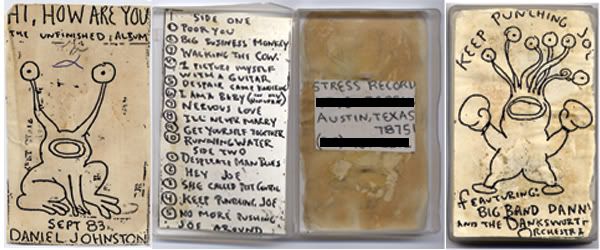 HI, HOW ARE YOU
THE UNFINISHED ALBUM
SEPT 83
DANIEL JOHNSTON
SIDE ONE
1 POOR YOU
2 BIG BUSINESS MONKEY
3 WALKING THE COW
4 I PICTURE MYSELF
WITH A GUITAR
5 DESPAIR CAME KNOCKING
6 I AM A BABY (IN MY UNIVERSE)
7 NERVOUS LOVE
8 I'LL NEVER MARRY
9 GET YOURSELF TOGETHER
10 RUNNING WATER
SIDE TWO
1 DESPERATE MAN BLUES
2 HEY JOE
3 SHE CALLED PEST CONTROL
4 KEEP PUNCHING JOE
5 NO MORE PUSHING
JOE AROUND
STRESS RECORD
AUSTIN, TEXAS
7875
KEEP PUNCHING JOE
FEATURING:
BIG BAND DANN
AND THE DANKSWORTH
ORCHESTRA